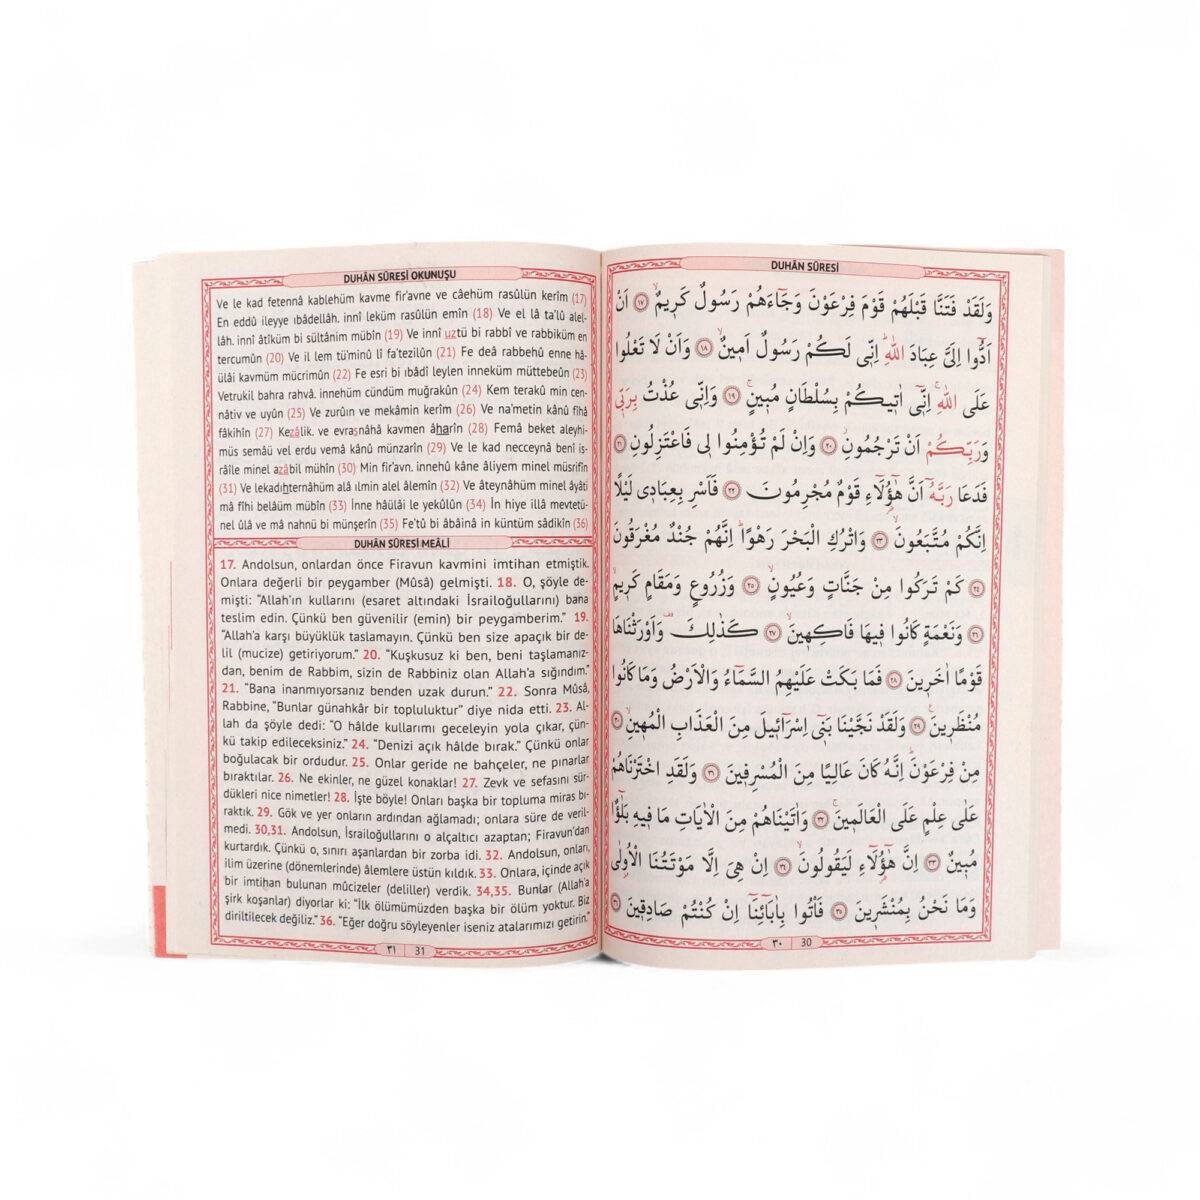 DUHÂN SÛRESİ
وَلَقَدْ فَتَنَّا قَبْلَهُمْ قَوْمَ فِرْعَوْنَ وَجَٓاءَهُمْ رَسُولٌ كَر۪يمٌۙ ﴿١٧﴾ اَنْ
اَدُّٓوا اِلَيَّ عِبَادَ اللّٰهِۜ اِنّ۪ي لَكُمْ رَسُولٌ اَم۪ينٌۙ ﴿١٨﴾ وَاَنْ لَا تَعْلُوا
عَلَى اللّٰهِۚ اِنّ۪ٓي اٰت۪يكُمْ بِسُلْطَانٍ مُب۪ينٍۚ ﴿١٩﴾ وَاِنّ۪ي عُذْتُ بِرَبّ۪ي
وَرَبِّكُمْ اَنْ تَرْجُمُونِۘ ﴿٢٠﴾ وَاِنْ لَمْ تُؤْمِنُوا ل۪ي فَاعْتَزِلُونِ ﴿٢١﴾
فَدَعَا رَبَّهُٓ اَنَّ هٰٓؤُ۬لَٓاءِ قَوْمٌ مُجْرِمُونَ ﴿٢٢﴾ فَاَسْرِ بِعِبَاد۪ي لَيْلًا
اِنَّكُمْ مُتَّبَعُونَۙ ﴿٢٣﴾ وَاتْرُكِ الْبَحْرَ رَهْوًاۜ اِنَّهُمْ جُنْدٌ مُغْرَقُونَ
﴿٢٤﴾ كَمْ تَرَكُوا مِنْ جَنَّاتٍ وَعُيُونٍۙ ﴿٢٥﴾ وَزُرُوعٍ وَمَقَامٍ كَر۪يمٍۙ
﴿٢٦﴾ وَنَعْمَةٍ كَانُوا ف۪يهَا فَاكِه۪ينَۙ ﴿٢٧﴾ كَذٰلِكَ۠ وَاَوْرَثْنَاهَا
قَوْمًا اٰخَر۪ينَ ﴿٢٨﴾ فَمَا بَكَتْ عَلَيْهِمُ السَّمَٓاءُ وَالْاَرْضُ وَمَا كَانُوا
مُنْظَر۪ينَ۟ ﴿٢٩﴾ وَلَقَدْ نَجَّيْنَا بَن۪ٓي اِسْرَٓائ۪لَ مِنَ الْعَذَابِ الْمُه۪ينِۙ ﴿٣٠﴾
مِنْ فِرْعَوْنَۜ اِنَّهُ كَانَ عَالِيًا مِنَ الْمُسْرِف۪ينَ ﴿٣١﴾ وَلَقَدِ اخْتَرْنَاهُمْ
عَلٰى عِلْمٍ عَلَى الْعَالَم۪ينَۚ ﴿٣٢﴾ وَاٰتَيْنَاهُمْ مِنَ الْاٰيَاتِ مَا ف۪يهِ بَلٰٓؤٌ۬ا
مُب۪ينٌ ﴿٣٣﴾ اِنَّ هٰٓؤُ۬لَٓاءِ لَيَقُولُونَۙ ﴿٣٤﴾ اِنْ هِيَ اِلَّا مَوْتَتُنَا الْاُو۫لٰى
وَمَا نَحْنُ بِمُنْشَر۪ينَ ﴿٣٥﴾ فَأْتُوا بِاٰبَٓائِنَٓا اِنْ كُنْتُمْ صَادِق۪ينَ ﴿٣٦﴾
٣٠ 30
DUHÂN SÛRESİ OKUNUŞU
Ve le kad fetennâ kablehüm kavme fir'avne ve câehüm rasûlün kerîm (17)
En eddû ileyye ıbâdellâh. innî leküm rasûlün emîn (18) Ve el lâ ta'lû alel-
lâh. innî âtîküm bi sültânim mübîn (19) Ve innî uztü bi rabbî ve rabbiküm en
tercumûn (20) Ve il lem tü'minû lî fa'tezilûn (21) Fe deâ rabbehû enne hâ-
ülâi kavmüm mücrimûn (22) Fe esri bi ıbâdî leylen inneküm müttebeûn (23)
Vetrukil bahra rahvâ. innehüm cündüm muğrakûn (24) Kem terakû min cen-
nâtiv ve uyûn (25) Ve zurûın ve mekâmin kerîm (26) Ve na'metin kânû fîhâ
fâkihîn (27) Kezâlik. ve evrasnâhâ kavmen âharîn (28) Femâ beket aleyhi-
müs semâü vel erdu vemâ kânû münzarîn (29) Ve le kad necceynâ benî is-
râîle minel azâbil mühîn (30) Min fir'avn. innehû kâne âliyem minel müsrifîn
(31) Ve lekadıhternâhüm alâ ılmin alel âlemîn (32) Ve âteynâhüm minel âyâti
mâ fîhi belâüm mübîn (33) İnne hâülâi le yekûlûn (34) İn hiye illâ mevtetü-
nel ûlâ ve mâ nahnü bi münşerîn (35) Fe'tû bi âbâinâ in küntüm sâdikîn (36)
DUHÂN SÛRESİ MEÂLİ
17. Andolsun, onlardan önce Firavun kavmini imtihan etmiştik.
Onlara değerli bir peygamber (Mûsâ) gelmişti. 18. O, şöyle de-
mişti: "Allah'ın kullarını (esaret altındaki İsrailoğullarını) bana
teslim edin. Çünkü ben güvenilir (emin) bir peygamberim." 19.
"Allah'a karşı büyüklük taslamayın. Çünkü ben size apaçık bir de-
lil (mucize) getiriyorum." 20. "Kuşkusuz ki ben, beni taşlamanız-
dan, benim de Rabbim, sizin de Rabbiniz olan Allah'a sığındım."
21. "Bana inanmıyorsanız benden uzak durun." 22. Sonra Mûsâ,
Rabbine, "Bunlar günahkâr bir topluluktur" diye nida etti. 23. Al-
lah da şöyle dedi: "O hâlde kullarımı geceleyin yola çıkar, çün-
kü takip edileceksiniz." 24. "Denizi açık hâlde bırak." Çünkü onlar
boğulacak bir ordudur. 25. Onlar geride ne bahçeler, ne pınarlar
bıraktılar. 26. Ne ekinler, ne güzel konaklar! 27. Zevk ve sefasını sür-
dükleri nice nimetler! 28. İşte böyle! Onları başka bir topluma miras bı-
raktık. 29. Gök ve yer onların ardından ağlamadı; onlara süre de veril-
medi. 30,31. Andolsun, İsrailoğullarını o alçaltıcı azaptan; Firavun'dan
kurtardık. Çünkü o, sınırı aşanlardan bir zorba idi. 32. Andolsun, onları,
ilim üzerine (dönemlerinde) âlemlere üstün kıldık. 33. Onlara, içinde açık
bir imtihan bulunan mûcizeler (deliller) verdik. 34,35. Bunlar (Allah'a
şirk koşanlar) diyorlar ki: "İlk ölümümüzden başka bir ölüm yoktur. Biz
diriltilecek değiliz." 36. "Eğer doğru söyleyenler iseniz atalarımızı getirin."
٣١ 31